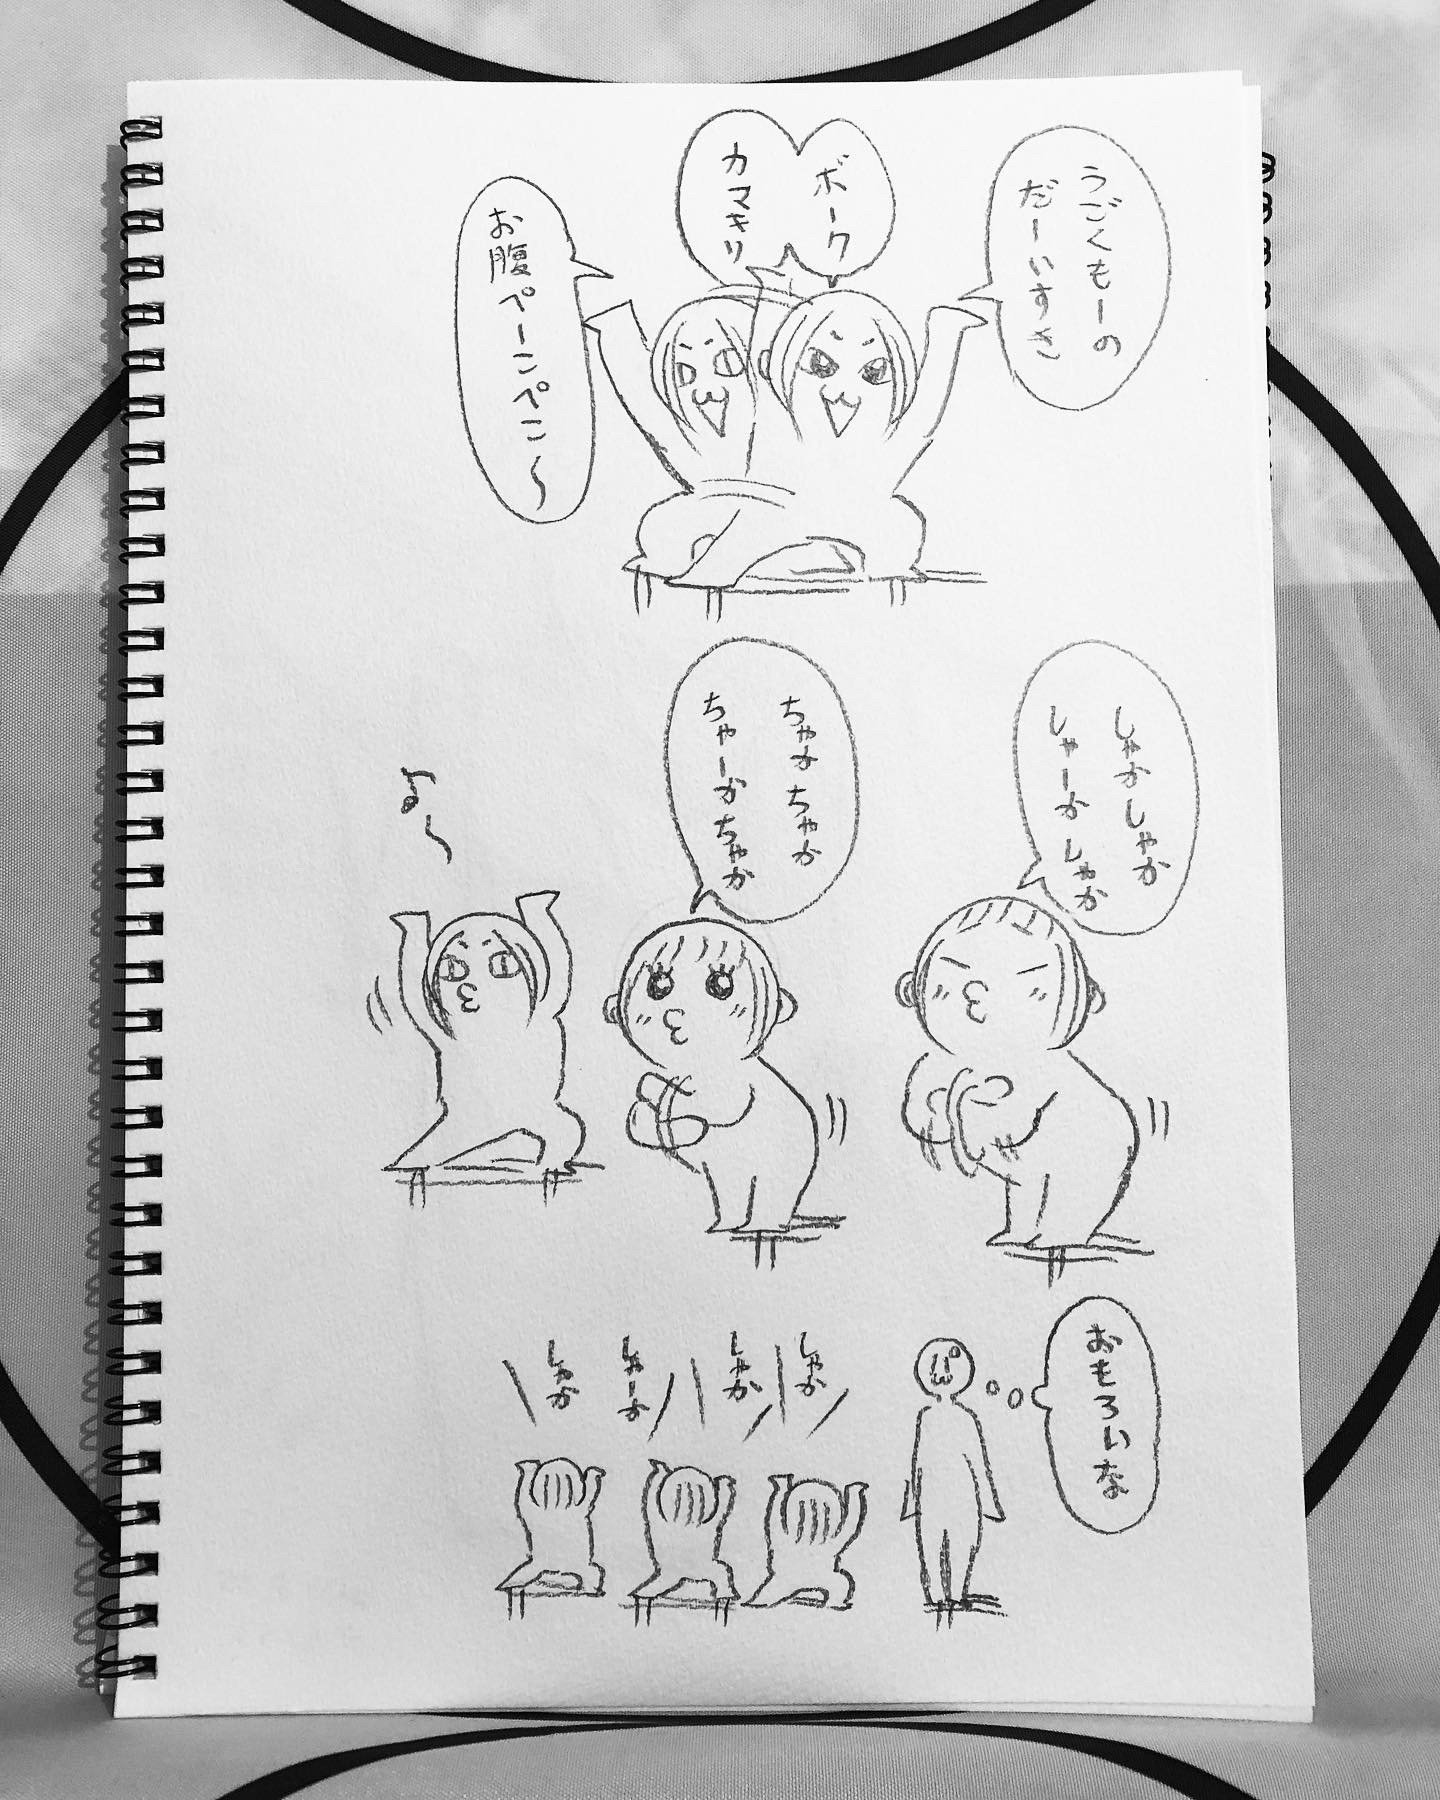 うごくもーの
だーいすき
ボーク
カマキリ
お腹ペーこペこ〜
しゃかしゃか
しゃーかしゃか
ちゃかちゃか
ちゃーかちゃか
よ〜
おもろいな
しゃか
しゃか
しゃーか
しゃか